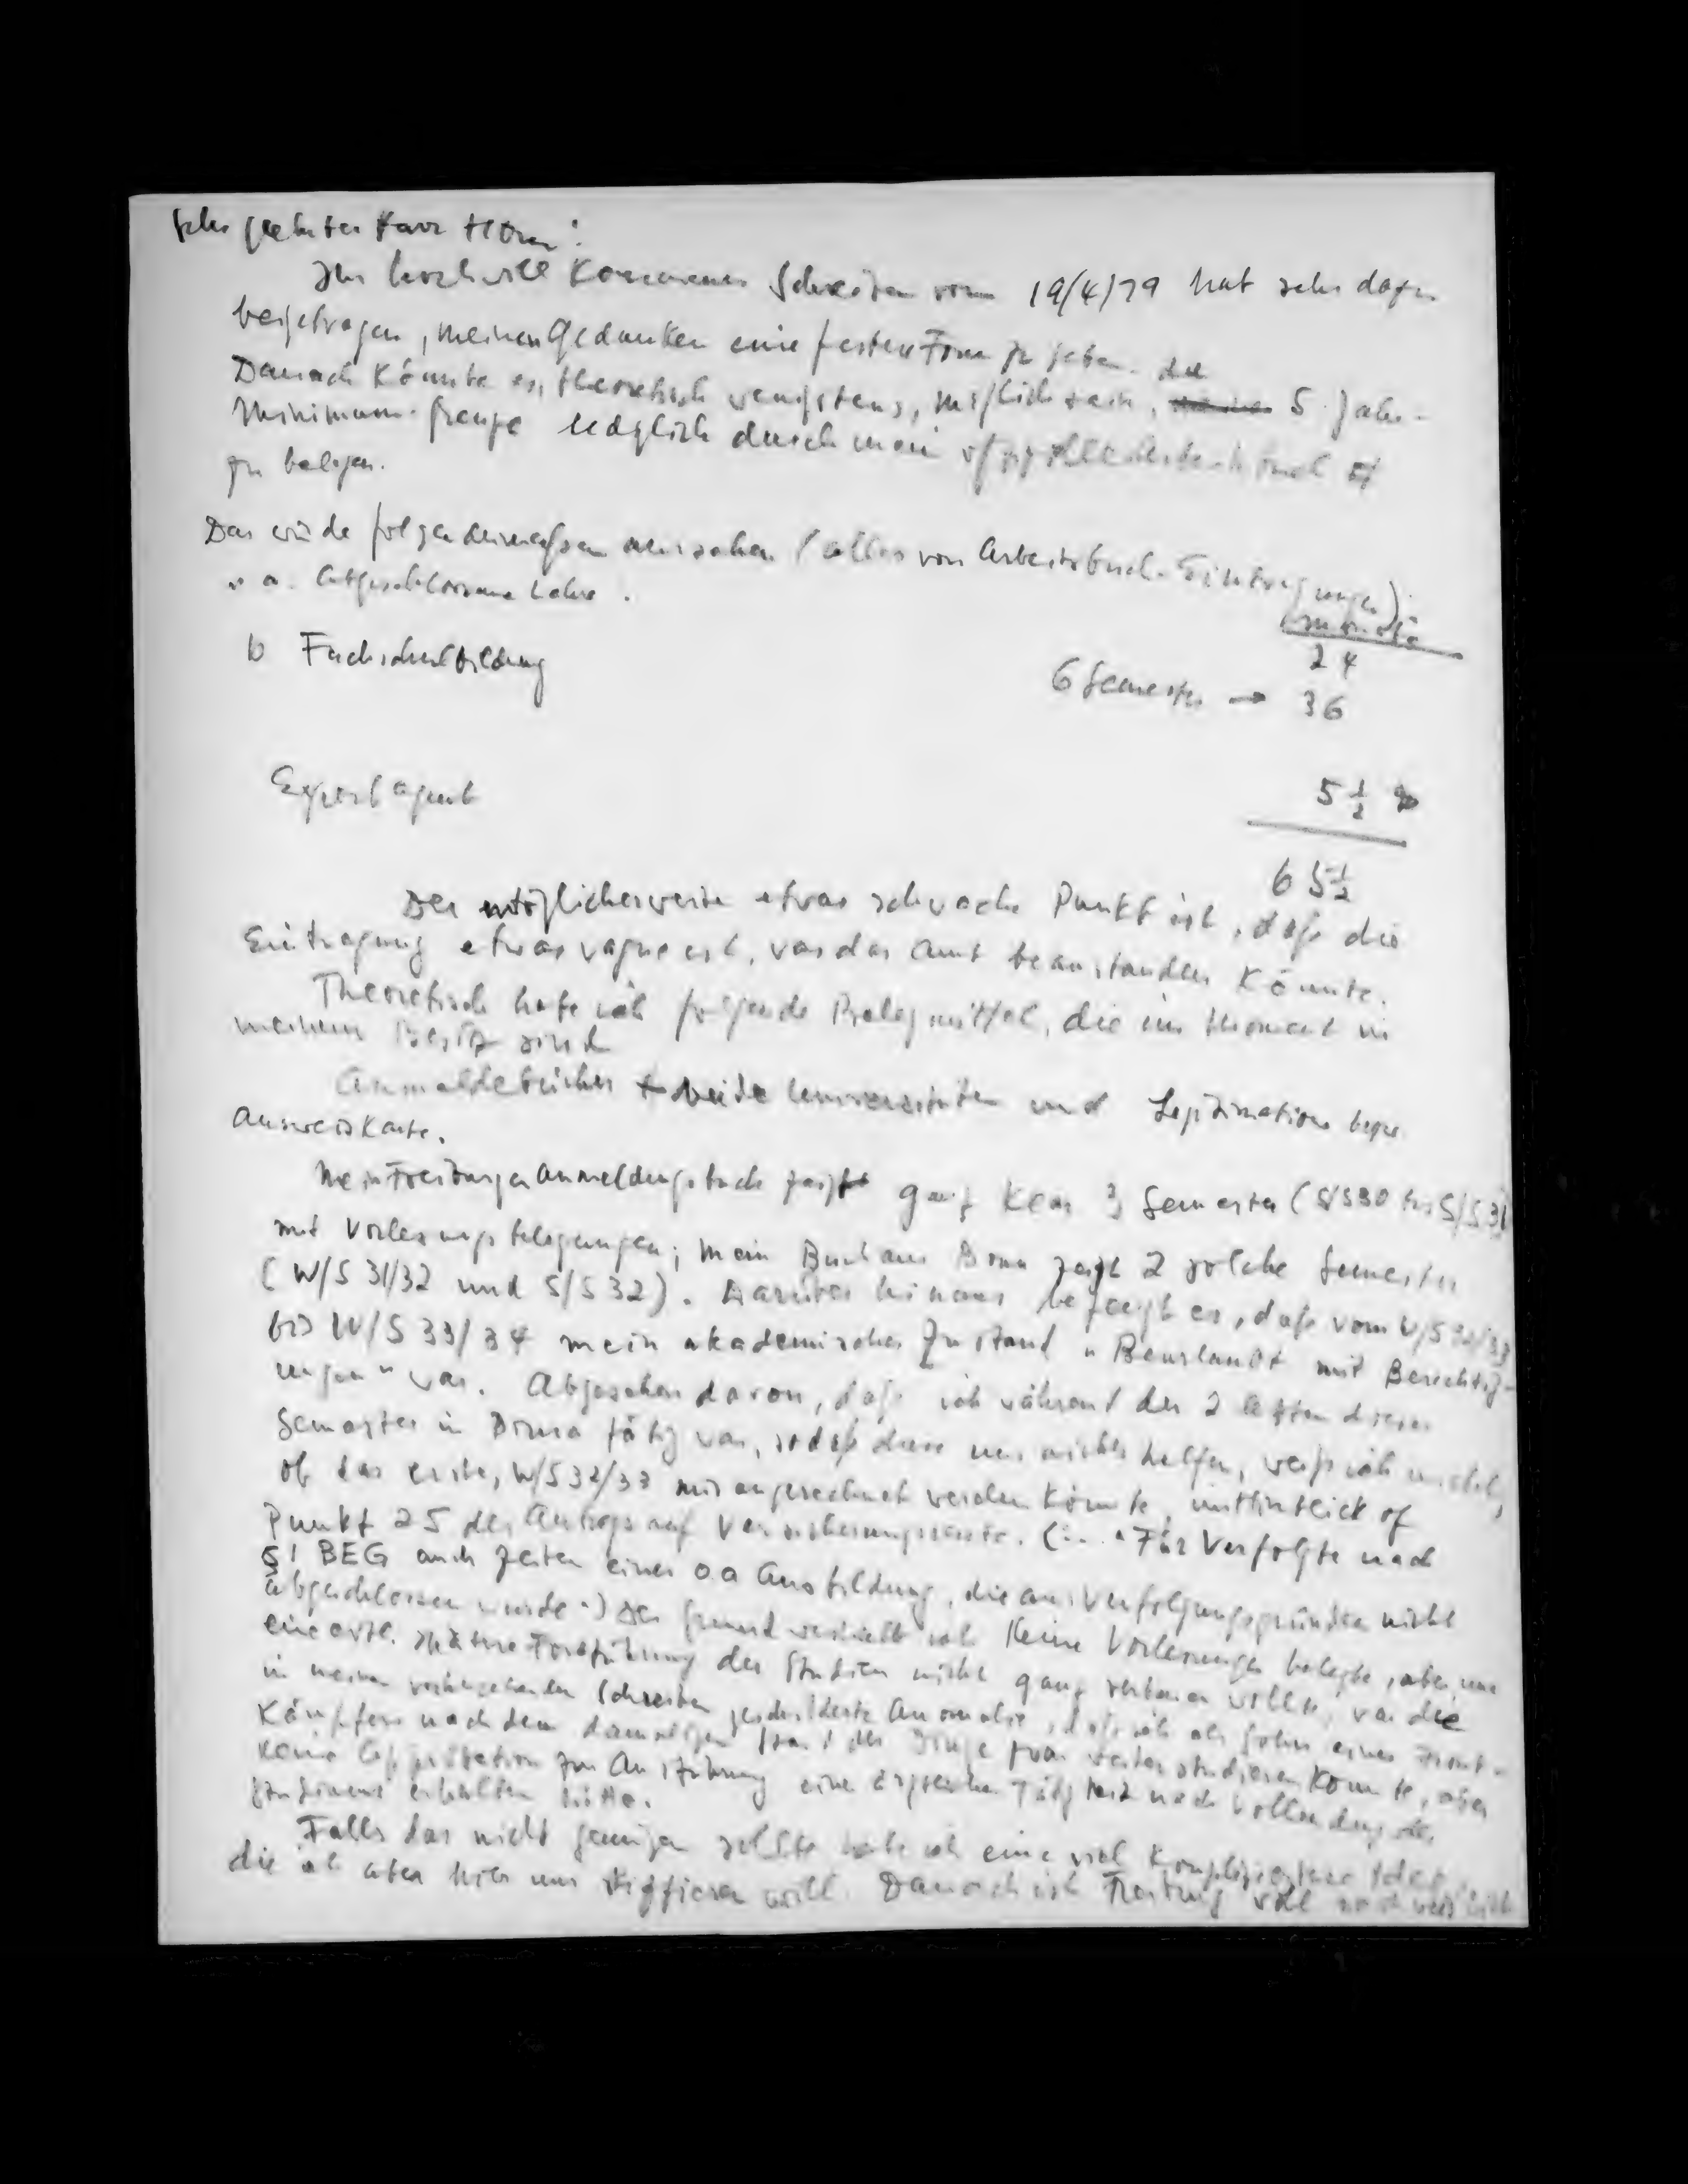 Sehr geehrter Herr
Ihr hochwillkommenes Schreiben vom 19/4/79 hat sehr dazu
beigetragen, meinen Gedanken eine festere Form zu geben. die
Danach könnte es, theoretisch wenigstens, möglich sein, 5 Jahr-
Minimum-Grenze lediglich durch mein
zu belegen.
Das würde folgendermaßen aussehen (alles von Arbeitsbuch-Eintragungen):
a. Abgeschlossene Lehre.
Monate
24
b Fachschulbildung
6 Semester → 36
Exportagent
5 1/2
65 1/2
Der möglicherweise etwas schwache Punkt ist, daß die
Eintragung etwas vague ist, was das Amt beanstanden könnte.
Theoretisch habe ich folgende Belegmittel, die im Moment in
meinem Besitz sind
Anmeldebücher beide Universitäten und Legitimations bezw
Ausweiskarte.
Mein Freiburger Anmeldungsbuch zeigt ganz klar 3 Semester (S/S 30 bis S/S 31)
mit Vorlesungsbelegungen; mein Buch aus Bonn zeigt 2 solche Semester
(W/S 31/32 und S/S 32). Darüber hinaus bezeugt es, daß vom W/S 32/33
bis W/S 33/34 mein akademischer Zustand "Beurlaubt mit Berechtig-
ungen" war. Abgesehen davon, daß ich während der 2 letzten dieser
Semester in tätig war, sodaß diese uns nichts helfen, weiß ich nicht,
ob das erste, W/S 32/33 mir angerechnet werden könnte, im Hinblick of
Punkt 25 des Antrags auf Versicherungsrente. (... "Für Verfolgte nach
§1 BEG auch Zeiten einer oa Ausbildung, die aus Verfolgungsgründen nicht
abgeschlossen wurde") Der Grund weshalb ich keine Vorlesungen belegte, aber mir
eine evtl. spätere Fortführung der Studien nicht ganz verbauen wollte, war die
in meinem vorhergehenden Schreiben geschilderte Anomalie, daß ich als Sohn eines Front-
kämpfers nach dem damaligen Stand der Dinge zwar weiter studieren konnte, aber
keine Approbation zur Ausführung einer ärztlichen Tätigkeit nach Vollendung des
Studiums erhalten hätte.
Falls das nicht genügen sollte habe ich eine viel kompliziertere Idee,
die ich aber hier nur skizzieren will. Danach ist Freiburg voll nachweislich